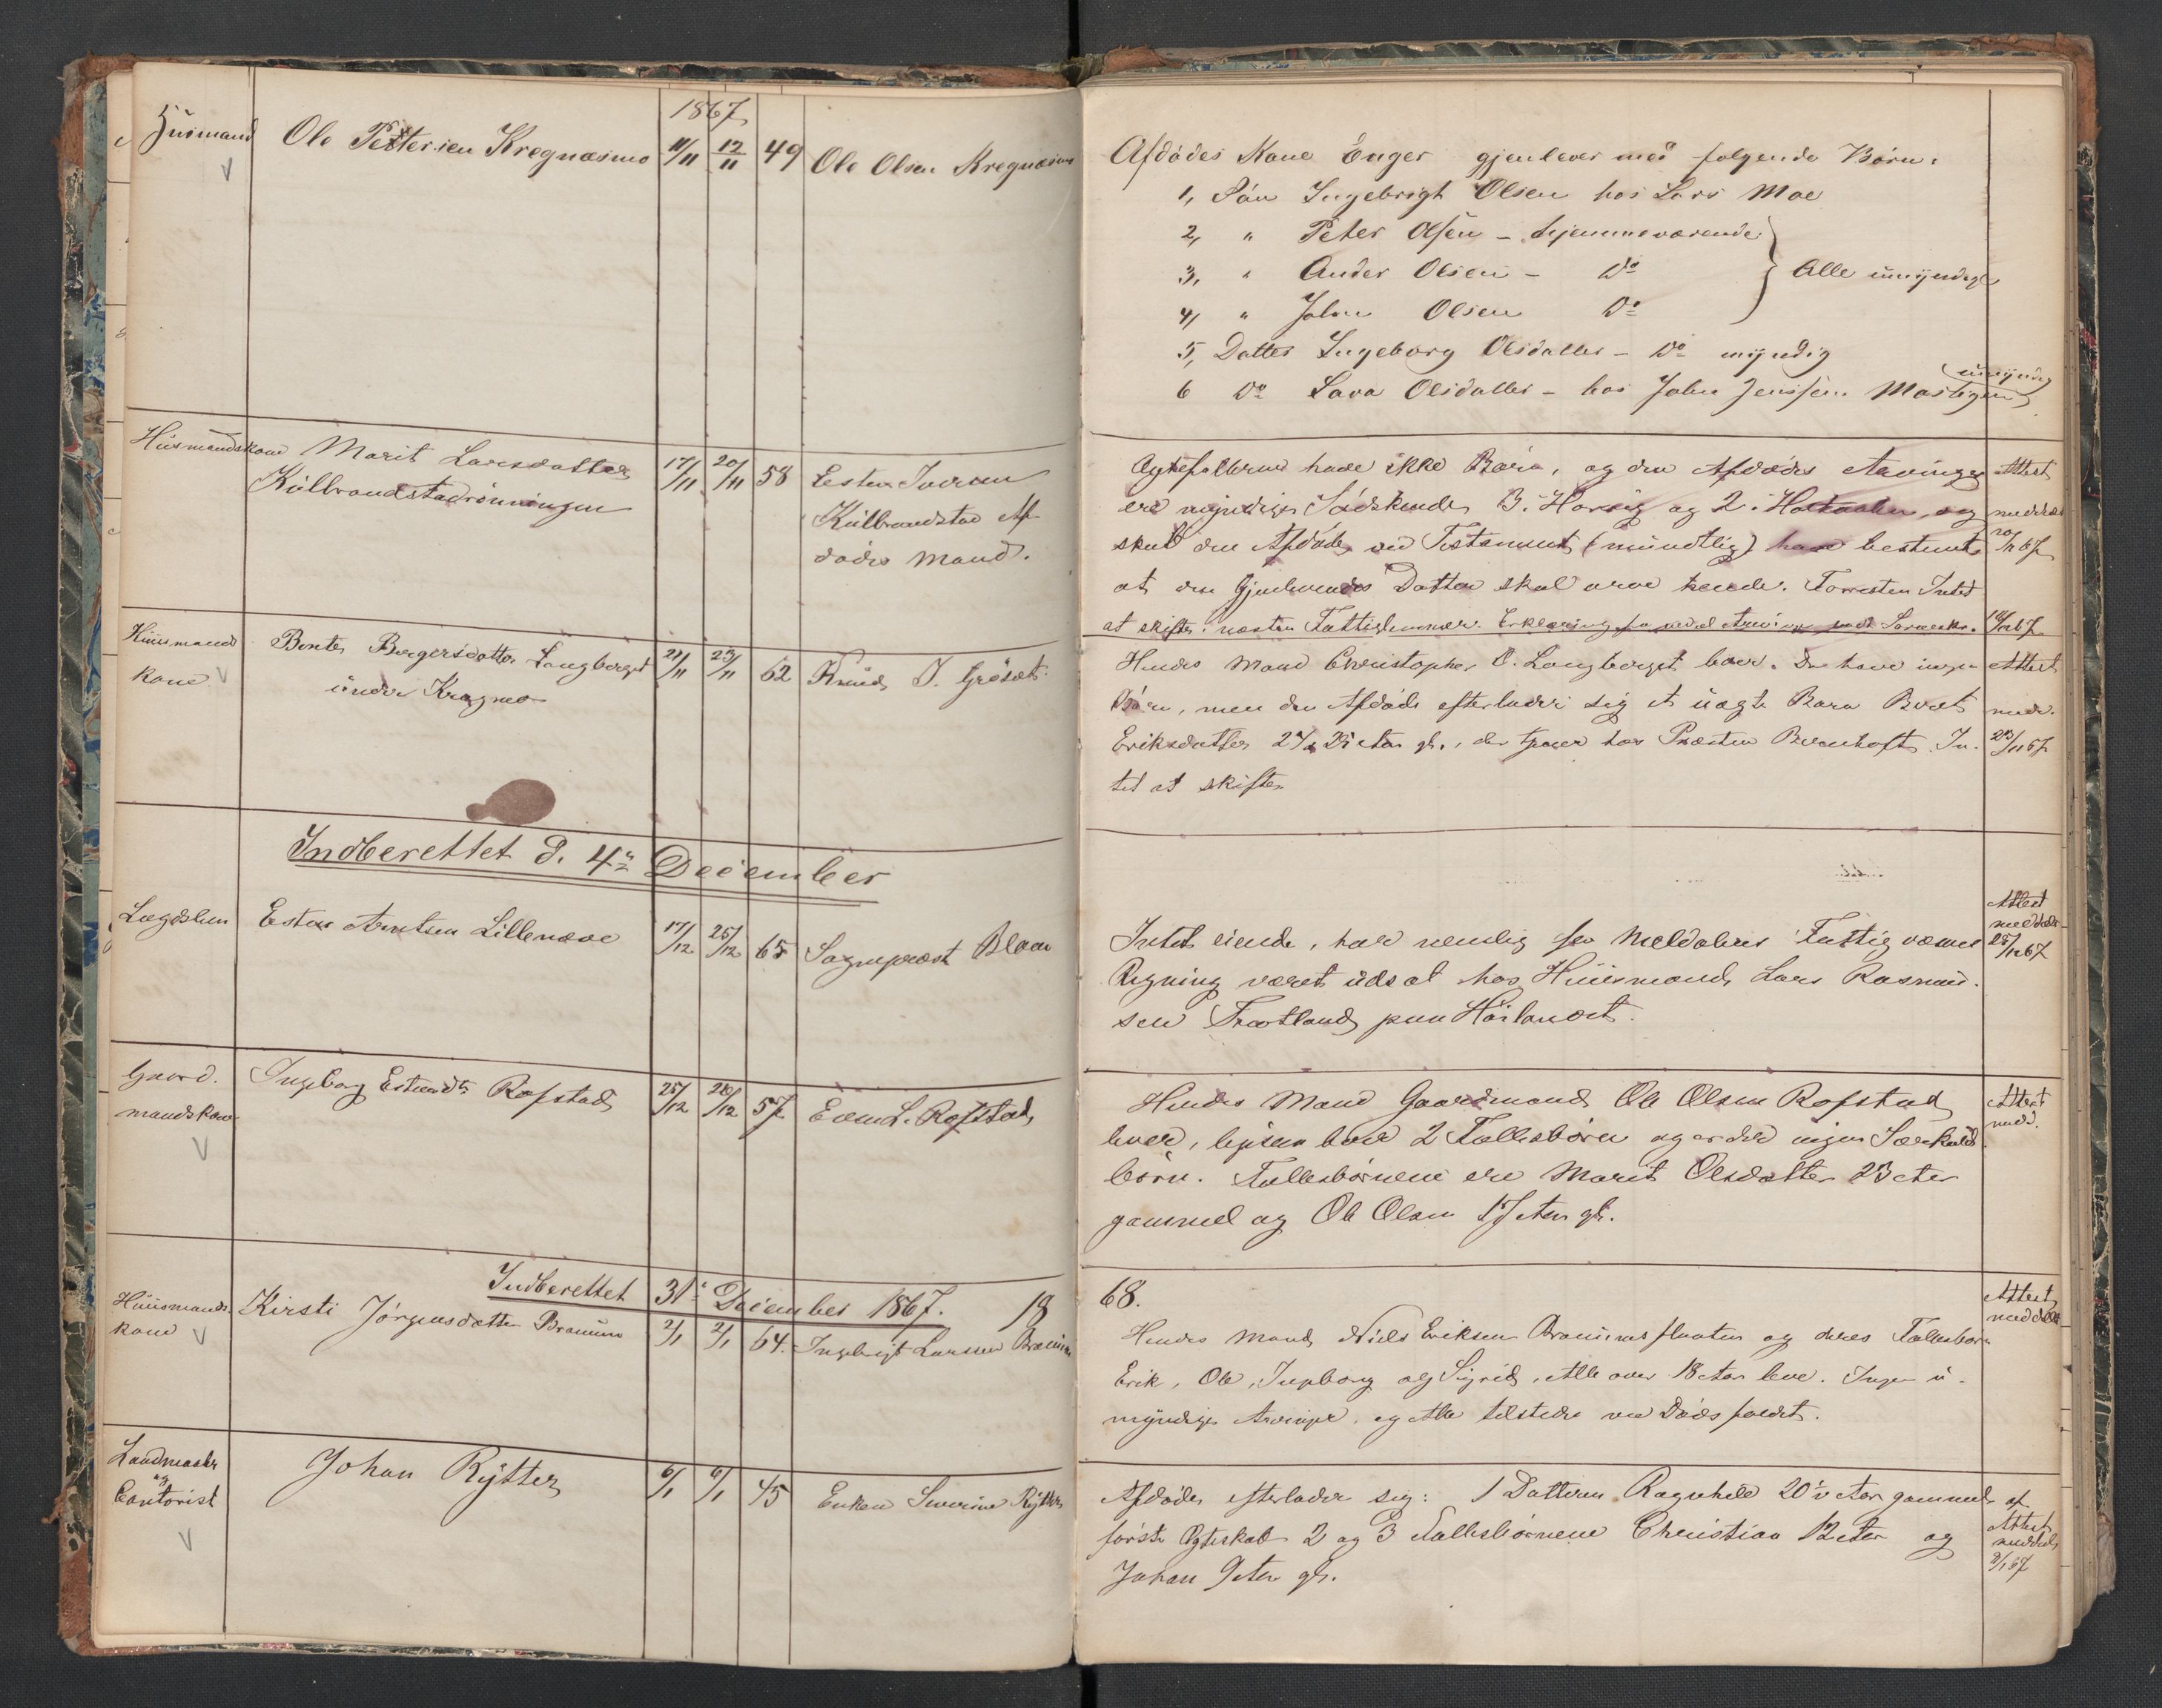 1867.
Husmand Ole Pettersen Kregnæsmo 11/11 12/11 49 Ole Olsen Kregnæsmo
Afdødes Kone Enger gjenlever med følgende Børn.
1, Søn Ingebrigt Olsen hos Lars Moe
2, " Peter Olsen - hjemmeværende
3, " Ander Olsen - Do } Alle umyndige
4, " John Olsen Do
5, Datter Ingeborg Olsdatter - Do myndig
6 Do Sara Olsdatter - hos John Jenssen (umyndig)
Huusmandskone Marit Larsdatter 17/11 20/11 58 Esten Iversen
Kulbrandstadrønningen Kulbrandstad Af-
dødes Mand.
Ægtefolkene have ikke Børn, og den Afdødes Arvinger
ere myndige Sødskende 3 i Horrig og 2 i Holtaalen, og
skal den Afdøde ved Testament (mundtlig) have bestemt
at den Gjenlevendes Datter skal arve hende. Forresten Intet
at skifte, næsten Fattiglemmer.
Attest
meddelt
20/11 67
Huusmands Berit Bergersdatter Langberget 21/11 23/11 62 Knud J. Grøset
kone under Kragmo
Hendes Mand Christopher O. Langberget lever. De have ingen
Børn, men den Afdøde efterlader sig et uægte Barn Beret
Eriksdatter 27 a 28 Aar gl., der tjener hos Præsten Brenhoft. In-
tet at skifte
Attest
medd.
23/11 67
Indberettet d. 4de December
Lægdslem Esten Arntsen Lillenæve 17/12 25/12 65 Sognepræst Blom
Intet eiende, har nemlig for Meldalens Fattigvæsens
Regning været udsat hos Huusmand Lars Rasmus-
sen Frøtland paa Hølandet.
Attest
meddelt
25/12 67
Gaard- Ingeborg Estensdtr Rofstad 25/12 28/12 57 Even L. Rofstad
mandskone
Hendes Mand Gaardmand Ole Olsen Rofstad
lever, ligesom 2 Fællesbørn og er der ingen Særkuld-
børn. Fællesbørnene ere Marit Olsdatter 23 Aar
gammel og Ole Olsen 17 Aar gl.
Attest
medd.
Indberettet 31te December 1867. 18
68.
Huusmands- Kirsti Jørgensdatter Braniem 2/1 2/1 64. Ingebrigt Larssen Braniem
kone
Hendes Mand Niels Eriksen Braniemsplaaten og deres Fællesbørn
Erik, Ole, Ingeborg og Sigrid, Alle over 18 Aar leve. Ingen u-
myndige Arvinger, og Alle tilstede ved Dødsfaldet.
Attest
meddelt
Landmaaler
og
Cantorist Johan Rytter 6/1 6/1 45 Enken Severine Rytter
Afdøde efterlader sig: 1 Datteren Ragnhild 20½ Aar gammel af
første Ægteskab 2 og 3 Fællesbørnene Christian 12 Aar og
Johan 9 Aar gl.
Attest
meddelt
9/1 67